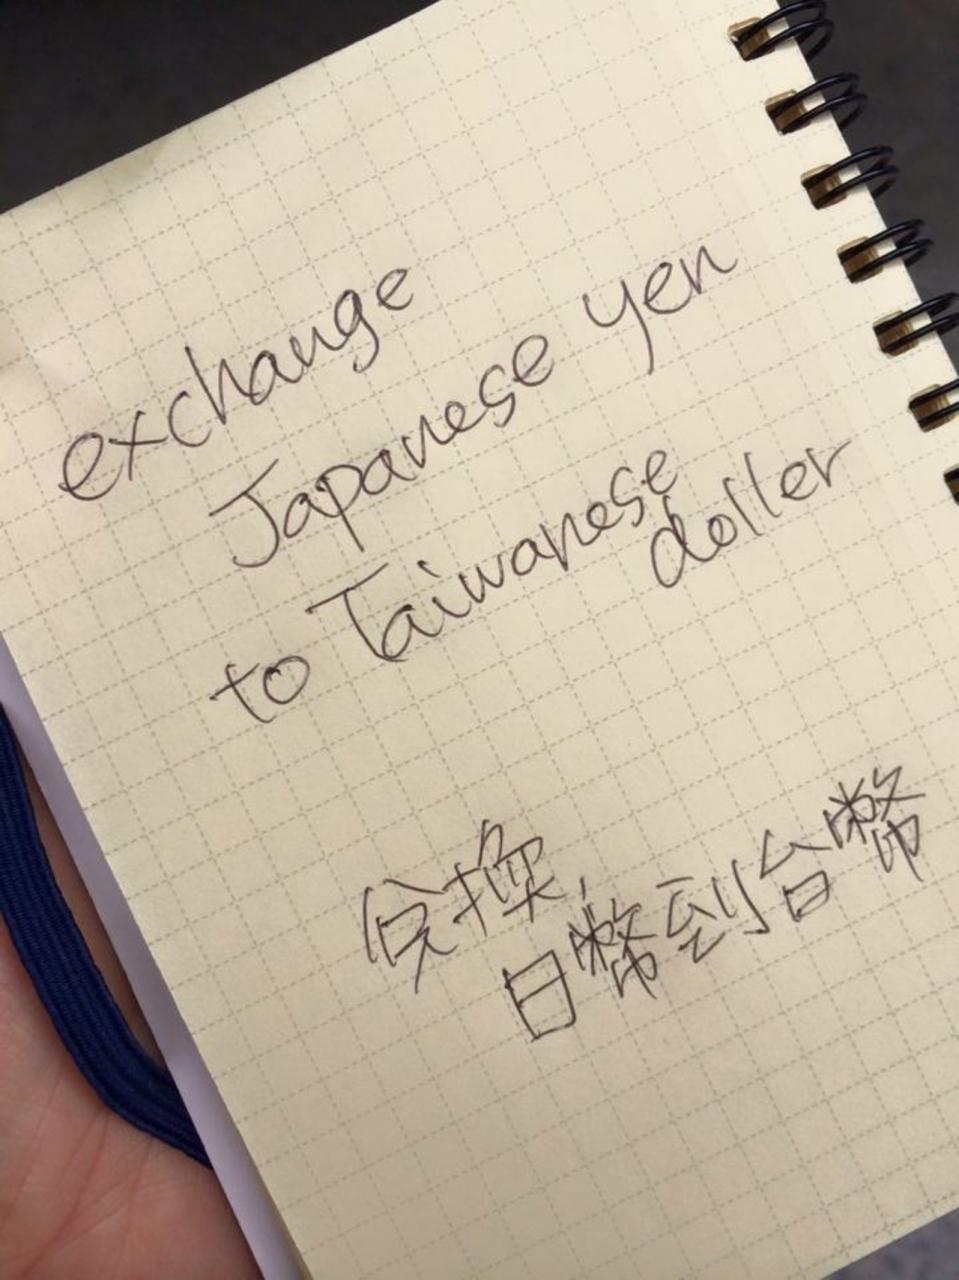 exchange
Japanese yen
to Taiwanese
doller
兌換
日幣到台幣